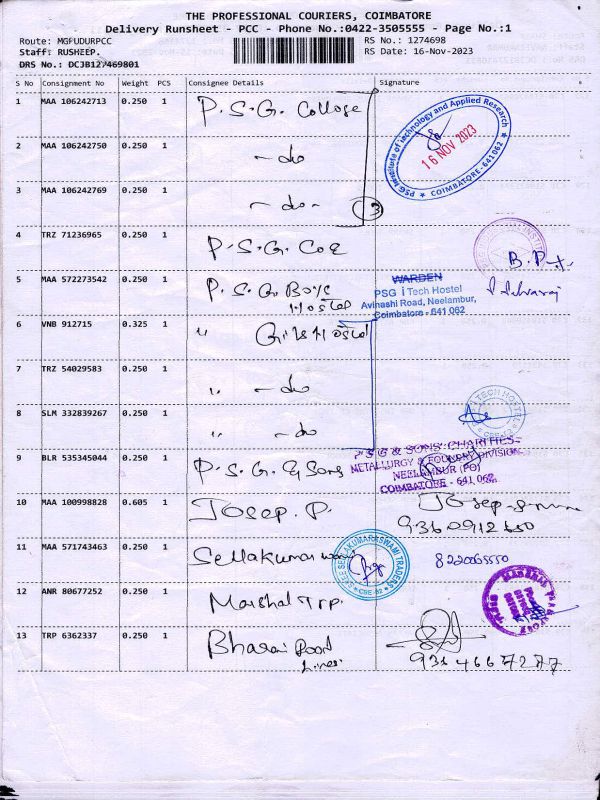 THE PROFESSIONAL COURIERS, COIMBATORE
Delivery Runsheet - PCC - Phone No.:0422-3505555 - Page No.:1
Route: MGFUDURPCC
RS No.: 1274698
Staff: RUSHEEP.
RS Date: 16-Nov-2023
DRS No.: DCJB127469801
S No Consignment No Weight PCS Consignee Details Signature
1 MAA 106242713 0.250 1 P.S.G. College
PSG Institute of Technology and Applied Research
16 NOV 2023
COIMBATORE-641062
2 MAA 106242750 0.250 1 - do
3 MAA 106242769 0.250 1 - do -
3
4 TRZ 71236965 0.250 1 P.S.G. COE
5 MAA 572273542 0.250 1 P.S.G. Boys
WARDEN
PSG iTech Hostel
Avinashi Road, Neelambur,
Coimbatore - 641 062
6 VNB 912715 0.325 1 "
7 TRZ 54029583 0.250 1 " - do
8 SLM 332839267 0.250 1 " - do
9 BLR 535345044 0.250 1 P.S.G. & Sons
PSG & SONS' CHARITIES
METALLURGY & FOUNDRY DIVISION
NEELAMBUR (PO)
COIMBATORE - 641 062
10 MAA 100998828 0.605 1 Josep. P.
11 MAA 571743463 0.250 1 Sellakumar
SREE SELLAKUMARASWAMI TRADERS
CBE-62
8220065550
12 ANR 80677252 0.250 1 Marshal Trp.
13 TRP 6362337 0.250 1